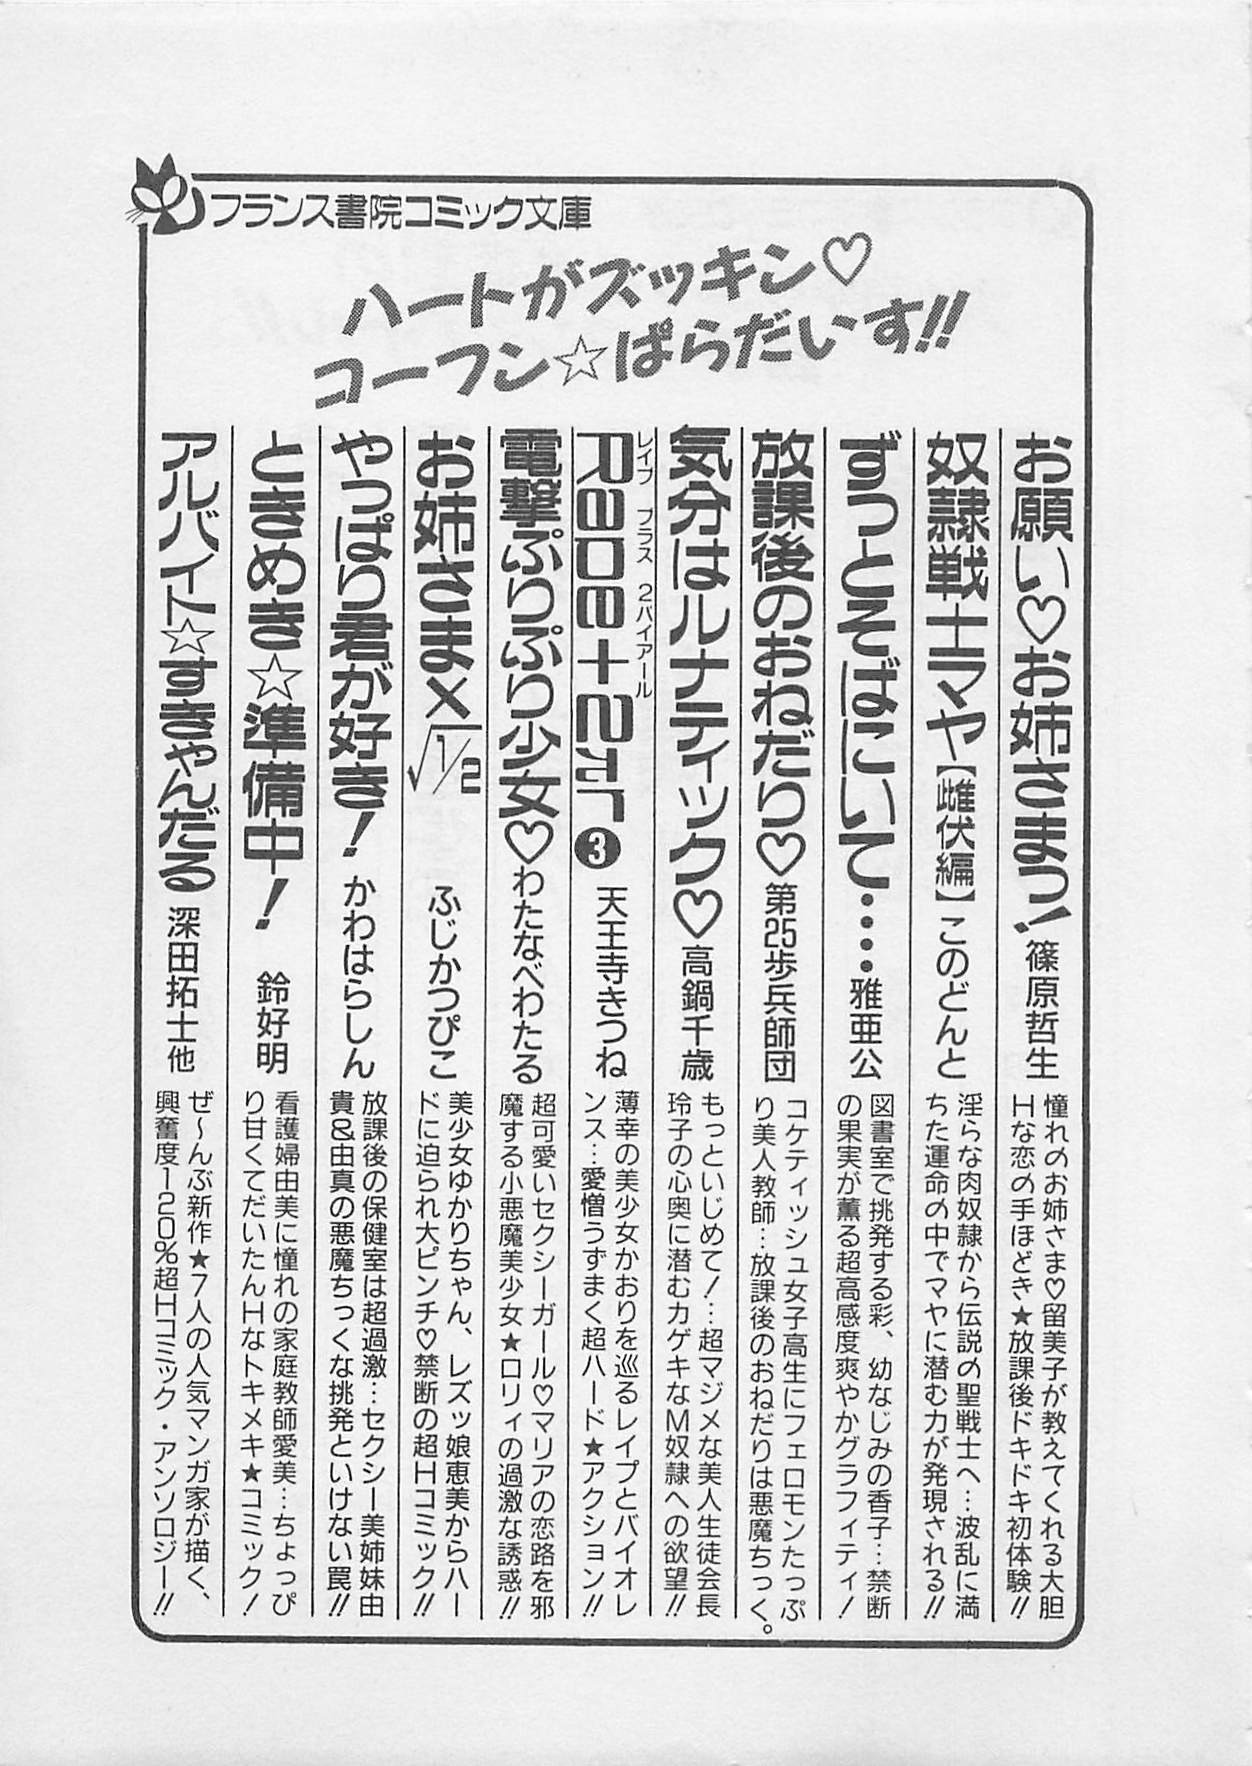 フランス書院コミック文庫
ハートがズッキン♡
コーフン☆ぱらだいす!!
お願い♡お姉さまっ! 篠原哲生
憧れのお姉さま♡留美子が教えてくれる大胆
Hな恋の手ほどき★放課後ドキドキ初体験!!
奴隷戦士マヤ【雌伏編】このどんと
淫らな肉奴隷から伝説の聖戦士へ…波乱に満
ちた運命の中でマヤに潜む力が発現される!!
ずっとそばにいて…… 雅亜公
図書室で挑発する彩、幼なじみの香子…禁断
の果実が薫る超高感度爽やかグラフィティ!
放課後のおねだり♡ 第25歩兵師団
コケティッシュ女子高生にフェロモンたっぷ
り美人教師…放課後のおねだりは悪魔ちっく。
気分はルナティック♡ 高鍋千歳
もっといじめて!…超マジメな美人生徒会長
玲子の心奥に潜むカゲキなM奴隷への欲望!!
レイプ プラス 2パイアール
Rape+2πr❸ 天王寺きつね
薄幸の美少女かおりを巡るレイプとバイオレ
ンス…愛憎うずまく超ハード★アクション!!
電撃ぷりぷり少女♡ わたなべわたる
超可愛いセクシーガール♡マリアの恋路を邪
魔する小悪魔美少女★ロリィの過激な誘惑!!
お姉さま×√1/2 ふじかつぴこ
美少女ゆかりちゃん、レズッ娘恵美からハー
ドに迫られ大ピンチ♡禁断の超Hコミック!!
やっぱり君が好き! かわはらしん
放課後の保健室は超過激…セクシー美姉妹由
貴&由真の悪魔ちっくな挑発といけない罠!!
ときめき☆準備中! 鈴好明
看護婦由美に憧れの家庭教師愛美…ちょっぴ
り甘くてだいたんHなトキメキ★コミック!
アルバイト☆すきゃんだる 深田拓士他
ぜ〜んぶ新作★7人の人気マンガ家が描く、
興奮度120%超Hコミック・アンソロジー!!